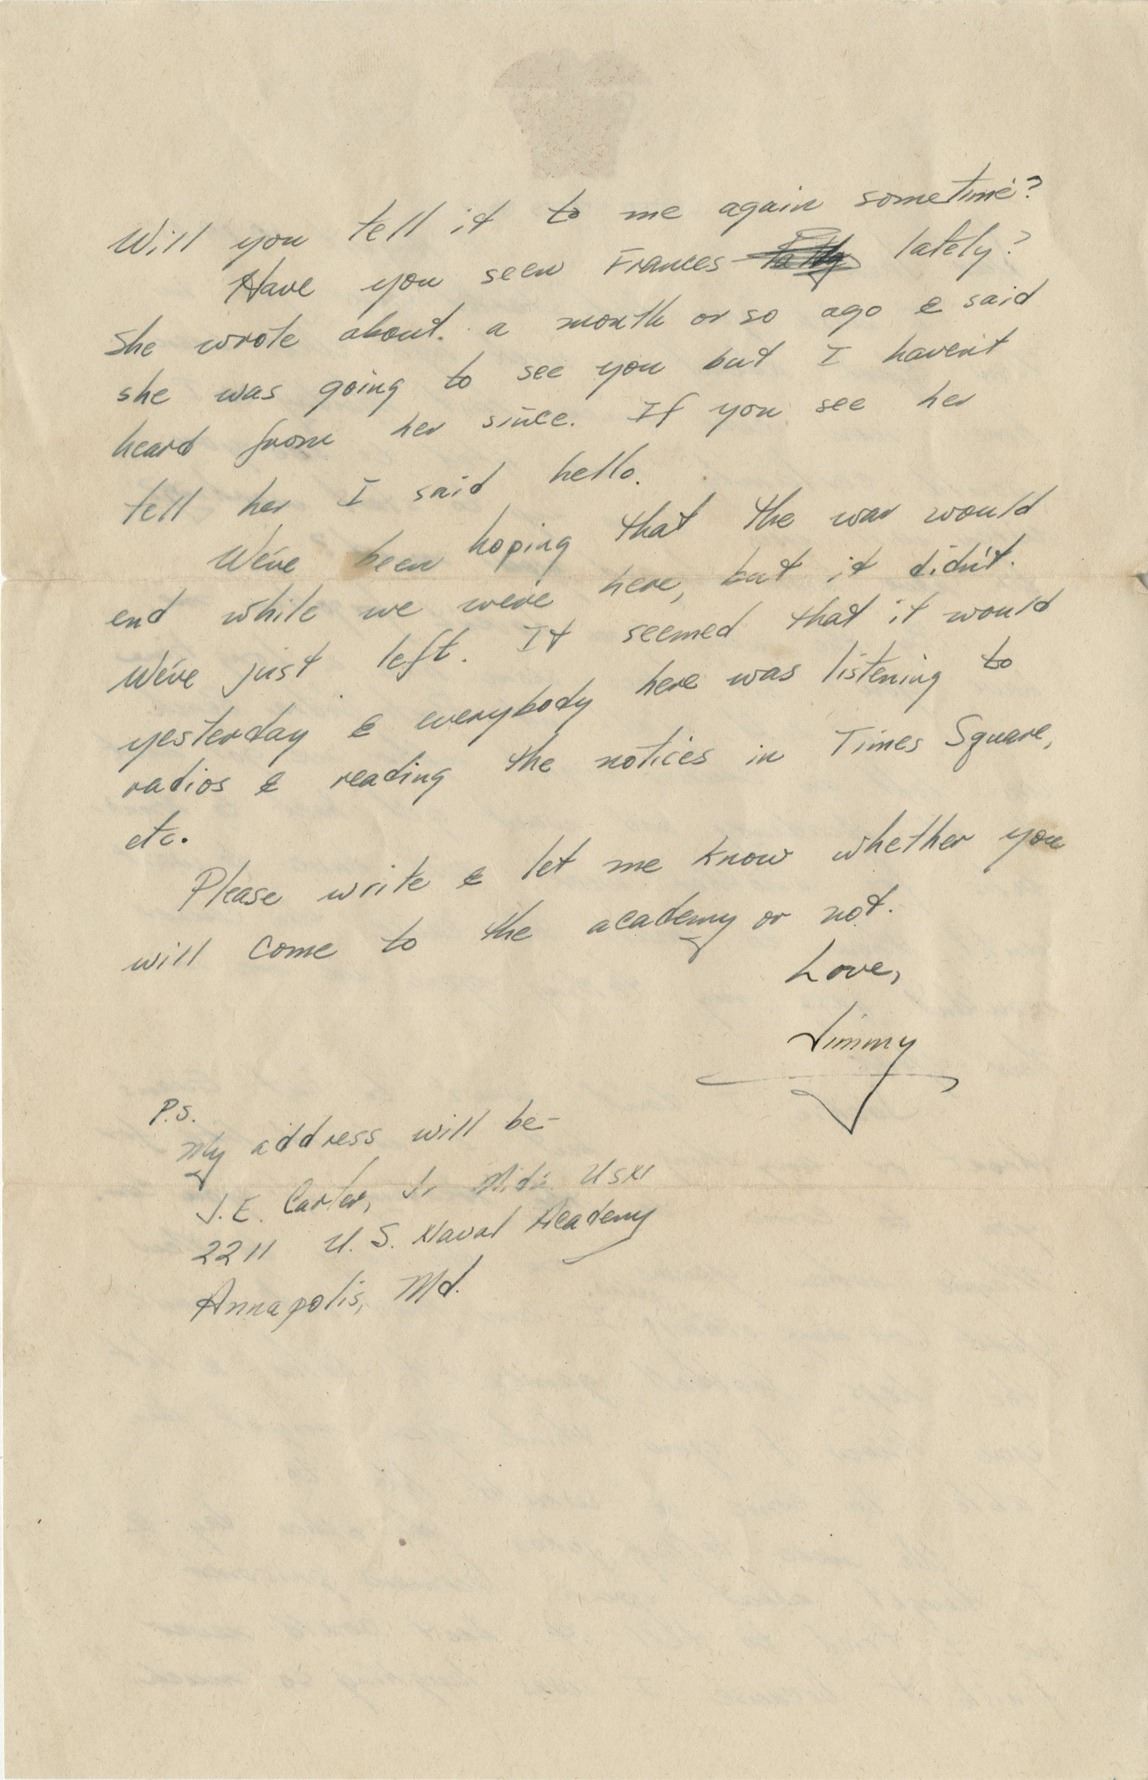 Will you tell it to me again sometime?
Have you seen Frances lately?
She wrote about a month or so ago & said
she was going to see you but I haven't
heard from her since. If you see her
tell her I said hello.
We've been hoping that the war would
end while we were here, but it didn't.
We've just left. It seemed that it would
yesterday & everybody here was listening to
radios & reading the notices in Times Square,
etc.
Please write & let me know whether you
will come to the academy or not.
Love,
Jimmy
P.S.
My address will be-
J.E. Carter, Jr Mid'n USN
2211 U.S. Naval Academy
Annapolis, Md.